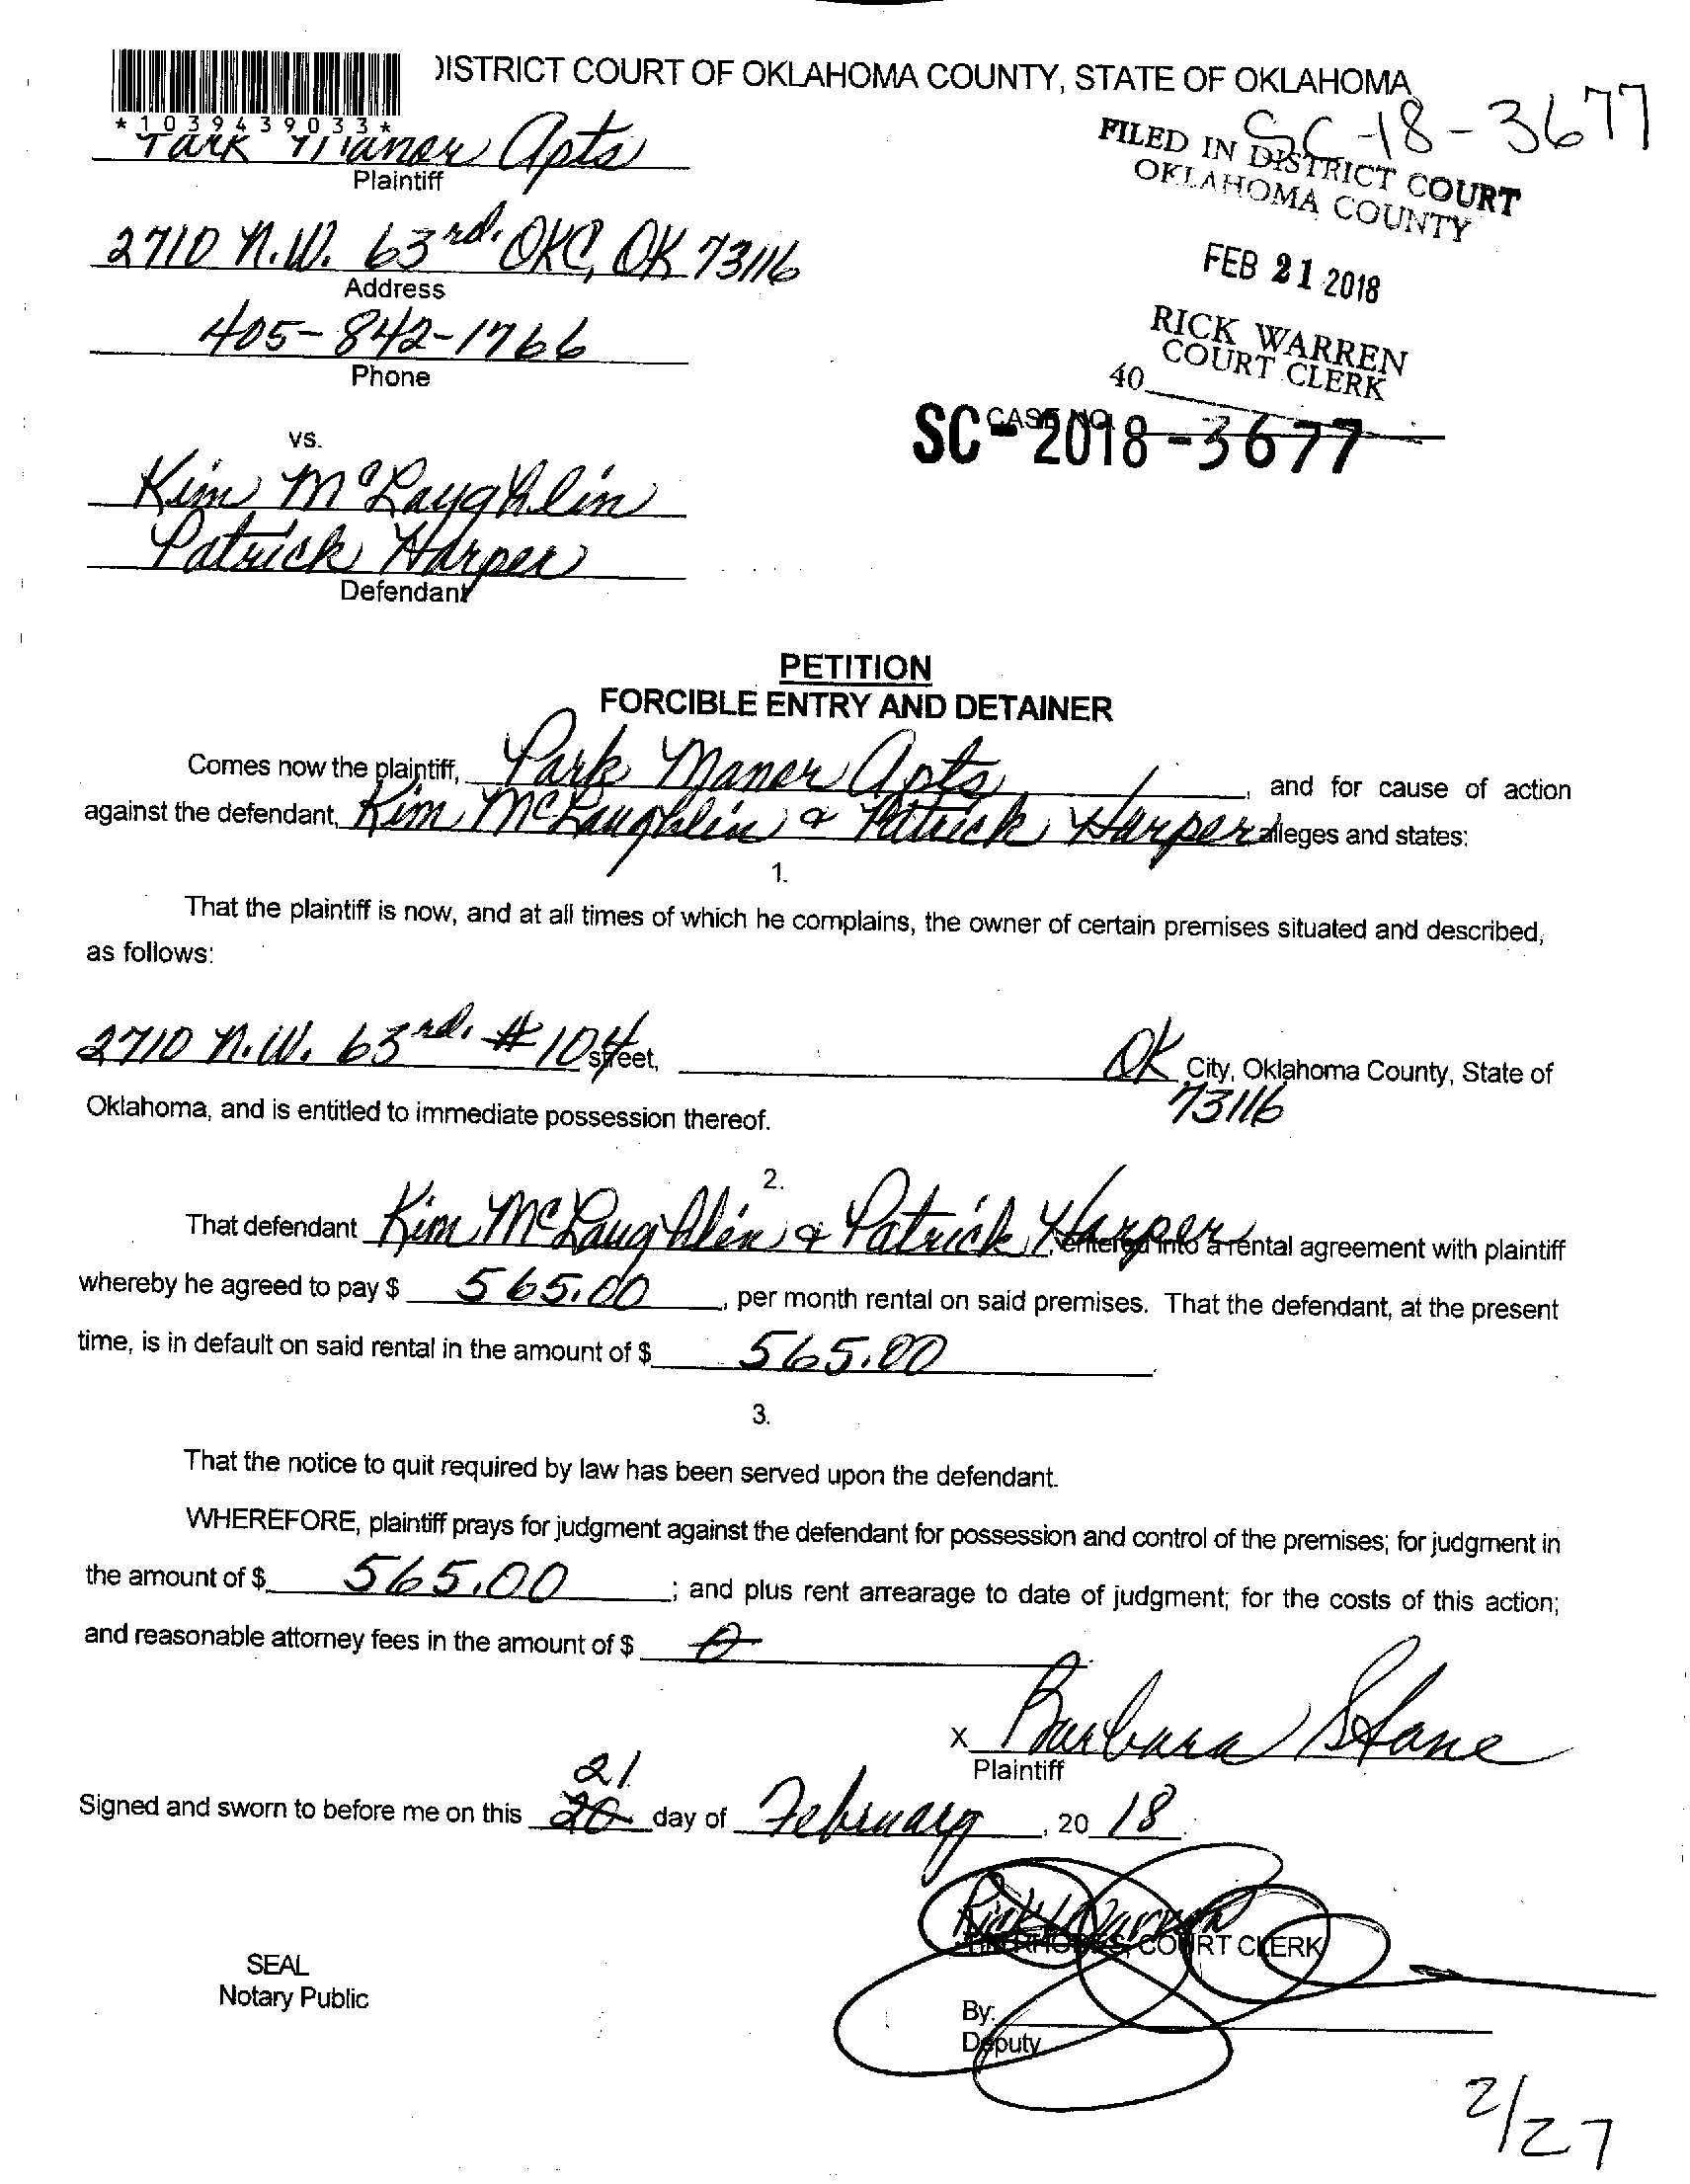 DISTRICT COURT OF OKLAHOMA COUNTY, STATE OF OKLAHOMA
*1039439033*
SC-18-3677
Park Manor Apts
Plaintiff
FILED IN DISTRICT COURT
OKLAHOMA COUNTY
2710 N.W. 63rd. OKC, OK 73116
Address
FEB 21 2018
405-842-1766
Phone
RICK WARREN
COURT CLERK
40
CASE NO.
SC-2018-3677
vs.
Kim McLaughlin
Patrick Harper
Defendant
PETITION
FORCIBLE ENTRY AND DETAINER
Comes now the plaintiff, Park Manor Apts, and for cause of action
against the defendant, Kim McLaughlin & Patrick Harper alleges and states:
1.
That the plaintiff is now, and at all times of which he complains, the owner of certain premises situated and described,
as follows:
2710 N.W. 63rd. #104 street, OK City, Oklahoma County, State of
73116
Oklahoma, and is entitled to immediate possession thereof.
2.
That defendant Kim McLaughlin & Patrick Harper, entered into a rental agreement with plaintiff
whereby he agreed to pay $ 565.00, per month rental on said premises. That the defendant, at the present
time, is in default on said rental in the amount of $ 565.00.
3.
That the notice to quit required by law has been served upon the defendant.
WHEREFORE, plaintiff prays for judgment against the defendant for possession and control of the premises; for judgment in
the amount of $ 565.00; and plus rent arrearage to date of judgment; for the costs of this action;
and reasonable attorney fees in the amount of $ 0.
x Barbara Slane
Plaintiff
21
Signed and sworn to before me on this 20 day of February, 20 18.
Rick Warren
RHODES, COURT CLERK
SEAL
Notary Public
By:
Deputy
2/27